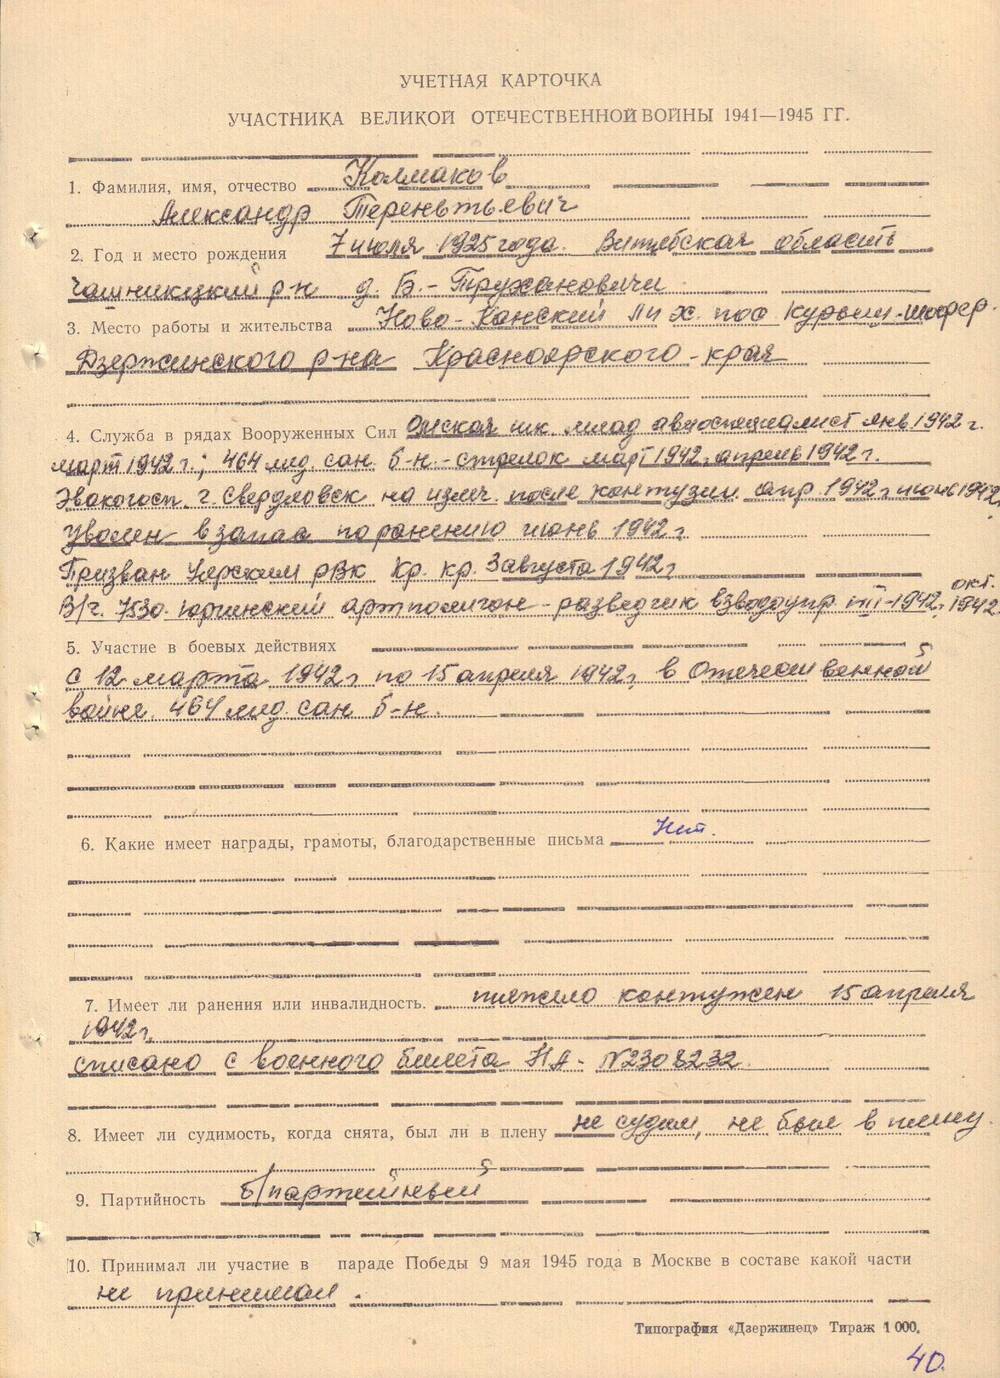 УЧЕТНАЯ КАРТОЧКА
УЧАСТНИКА ВЕЛИКОЙ ОТЕЧЕСТВЕННОЙ ВОЙНЫ 1941—1945 ГГ.
1. Фамилия, имя, отчество Колмаков
Александр Терентьевич
2. Год и место рождения 7 июля 1925 года. Витебская область
Чашникицкий р-н д. Б.-Трухановичи
3. Место работы и жительства Ново-Канский ЛПХ. пос Курыш-шофер.
Дзержинского р-на Красноярского-края
4. Служба в рядах Вооруженных Сил Омская шк. млад авиоспециалист янв 1942 г.
март 1942 г; 464 мед. сан. б-н.-стрелок март 1942г. апрель 1942 г.
Эвакогосп. г. Свердловск на излеч. после контузии апр. 1942 г июнь 1942.
Уволен в запас по ранению июнь 1942 г
Призван Уярским рВк Кр. кр. 3 августа 1942 г
В/ч. 7530 Юргинский артполигон-разведчик взвода упр. VIII-1942, окт. 1942.
5. Участие в боевых действиях
с 12 марта 1942 г по 15 апреля 1942 г, в Отечественной
войне. 464 мед. сан б-н.
6. Какие имеет награды, грамоты, благодарственные письма Нет.
7. Имеет ли ранения или инвалидность. тяжело контужен 15 апреля
1942 г.
списано с военного билета НА- №2308232.
8. Имеет ли судимость, когда снята, был ли в плену не судим, не был в плену.
9. Партийность б/партейный
10. Принимал ли участие в параде Победы 9 мая 1945 года в Москве в составе какой части
не принимал.
Типография «Дзержинец» Тираж 1 000.
40.